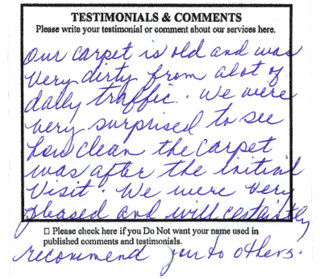 TESTIMONIALS & COMMENTS
Please write your testimonial or comment about our services here.
Our carpet is old and was
very dirty from alot of
daily traffic. We were
very surprised to see
how clean the carpet
was after the initial
visit. We were very
pleased and will certaintly
☐ Please check here if you Do Not want your name used in
published comments and testimonials.
recommend you to others.